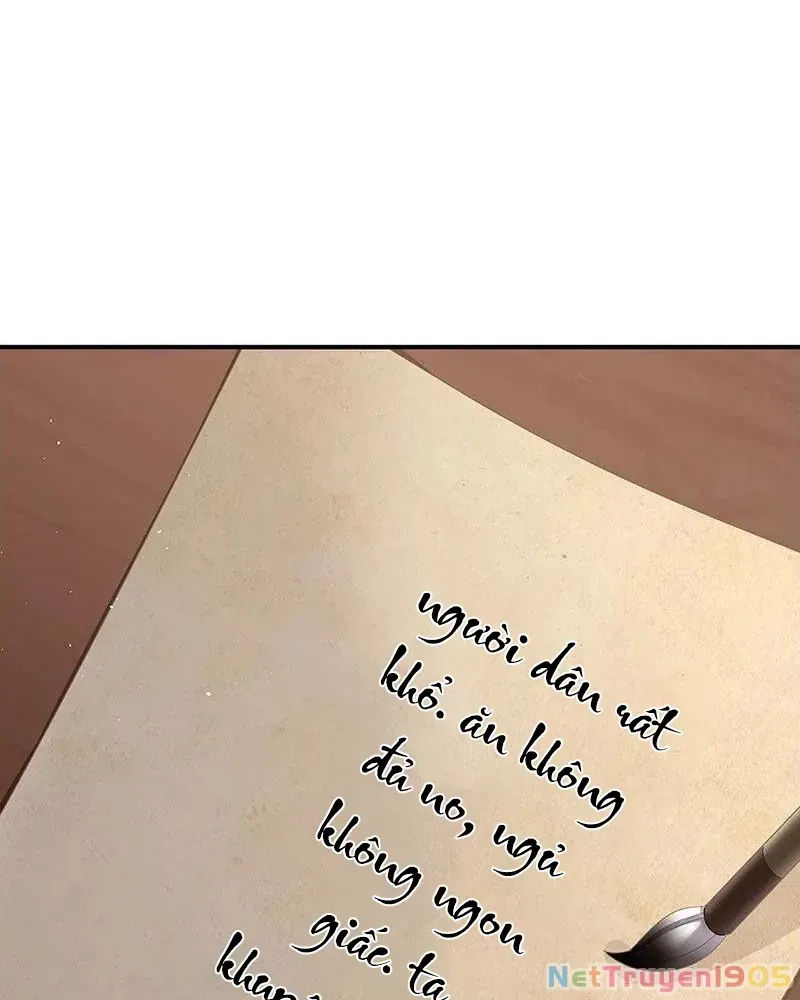 người dân rất
khổ. ăn không
đủ no, ngủ
không ngon
giấc. ta
NetTruyen1905